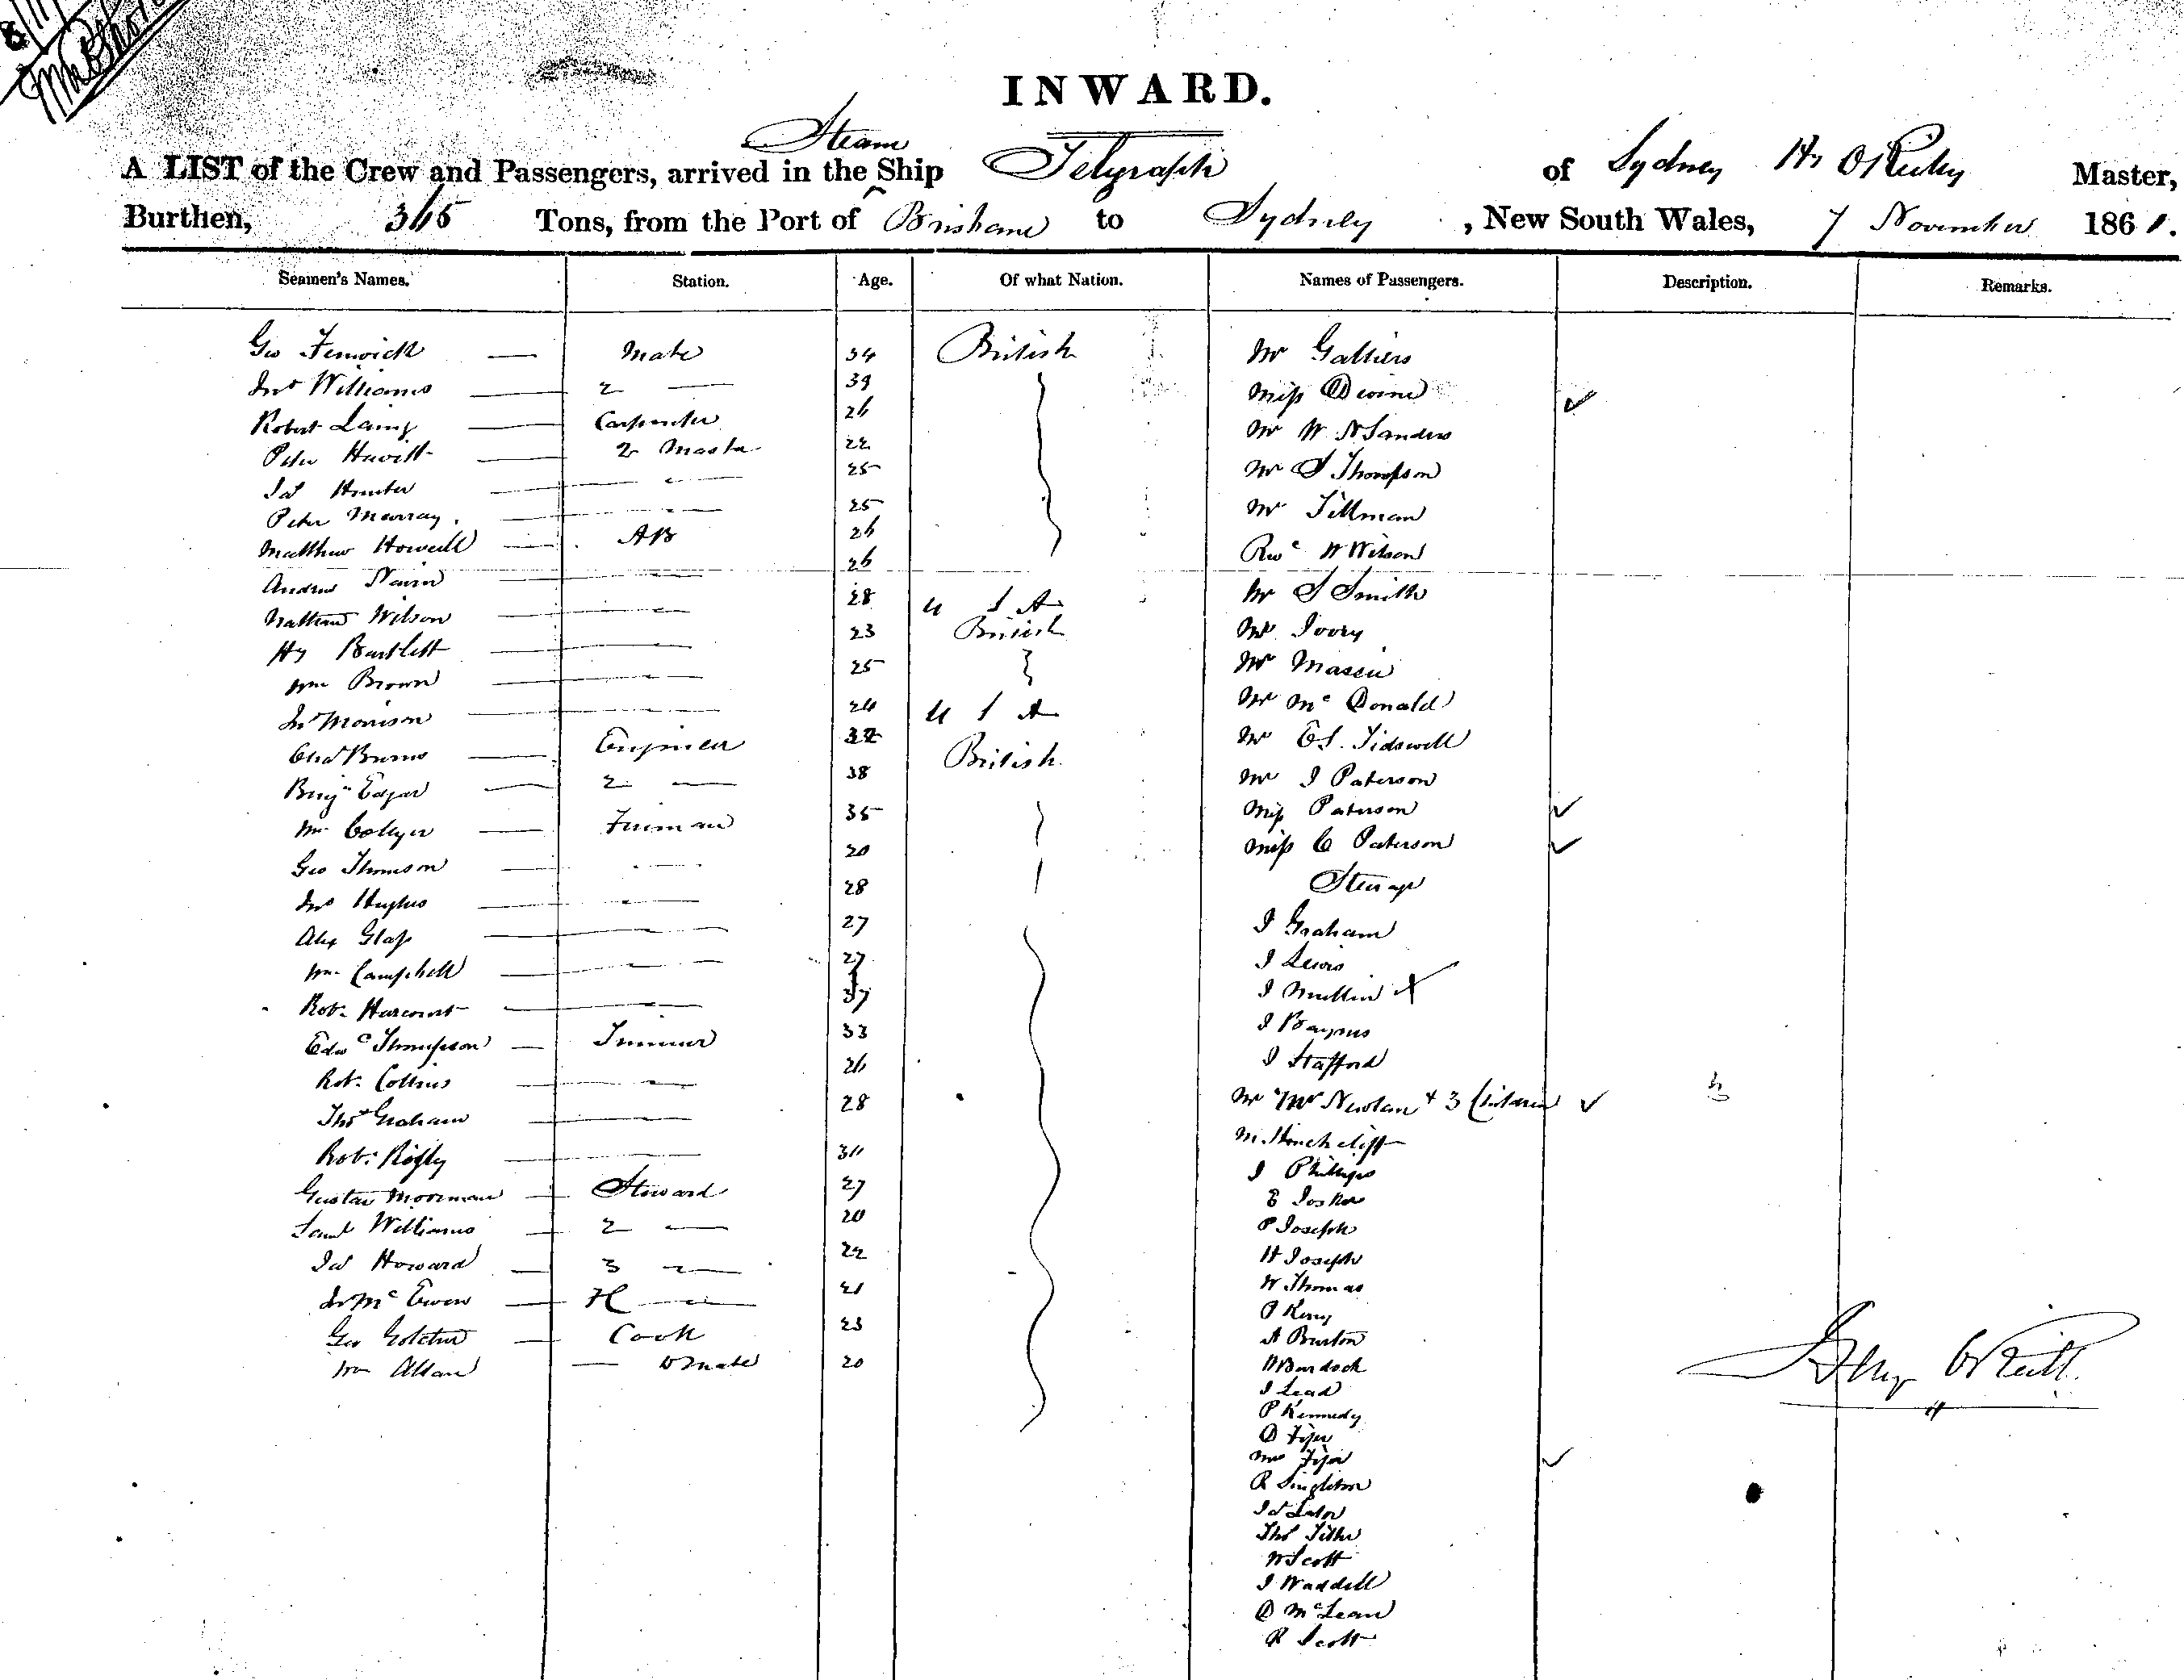 INWARD.
Steam
A LIST of the Crew and Passengers, arrived in the Ship Telegraph of Sydney Hy O'Reilly Master,
Burthen, 365 Tons, from the Port of Brisbane to Sydney, New South Wales, 7 November 1861.
Seamen's Names. Station. Age. Of what Nation. Names of Passengers. Description. Remarks.
Geo Fenwick — Mate 34 British Mr Galliers
Jno Williams — 2 — 39 Miss Devine ✓
Robert Laing — Carpenter 26 Mr W Sanders
Peter Hewitt — 2 22 Mr S Thompson
Jas Hunter — 25 Mr Tillman
Peter Murray — 25 W Wilson
Matthew Howell — AB 26 Mr S Smith
Andrew Nairn — 26 Mr Ivory
Nathan Wilson — 28 U S A Mr Massie
Hy Bartlett — 23 British Mr McDonald
Wm Brown — 25 Mr E S. Tidswell
Jno Morrison — 24 U S A Mr J Paterson
Chas Burns — Engineer 32 British Miss Paterson ✓
Benjn Edgar — 2 — 38 Miss C Paterson ✓
Wm Collyer — Fireman 35 Steerage
Geo Thomson — 20 J Graham
Jno Hughes — 28 J Lewis
Alex Glass — 27 J Mullin X
Wm Campbell — 27 J
Robt Harcourt — 37 J Stafford
Edwd Thompson — Trimmer 33 Mr Mrs Newlan + 3 Children ✓
Robt Collins — 26 M. Hinchcliff
Thos Graham — 28 J Phillips
Robt — E
Gustav Moorman — Steward 27 P Joseph
Saml Williams — 2 — 20 H Joseph
Jas Howard — 3 — 22 W Thomas
Jno McEwen — 21 P Kerry
Geo — Cook 23 A Burton
Wm Allan — Do mate 20 Burdock
J Lead
P Kennedy
D
Mrs ✓
R Singleton
Jas
Thos
W Scott
J Waddell
D McLean
R Scott
Henry O'Reilly